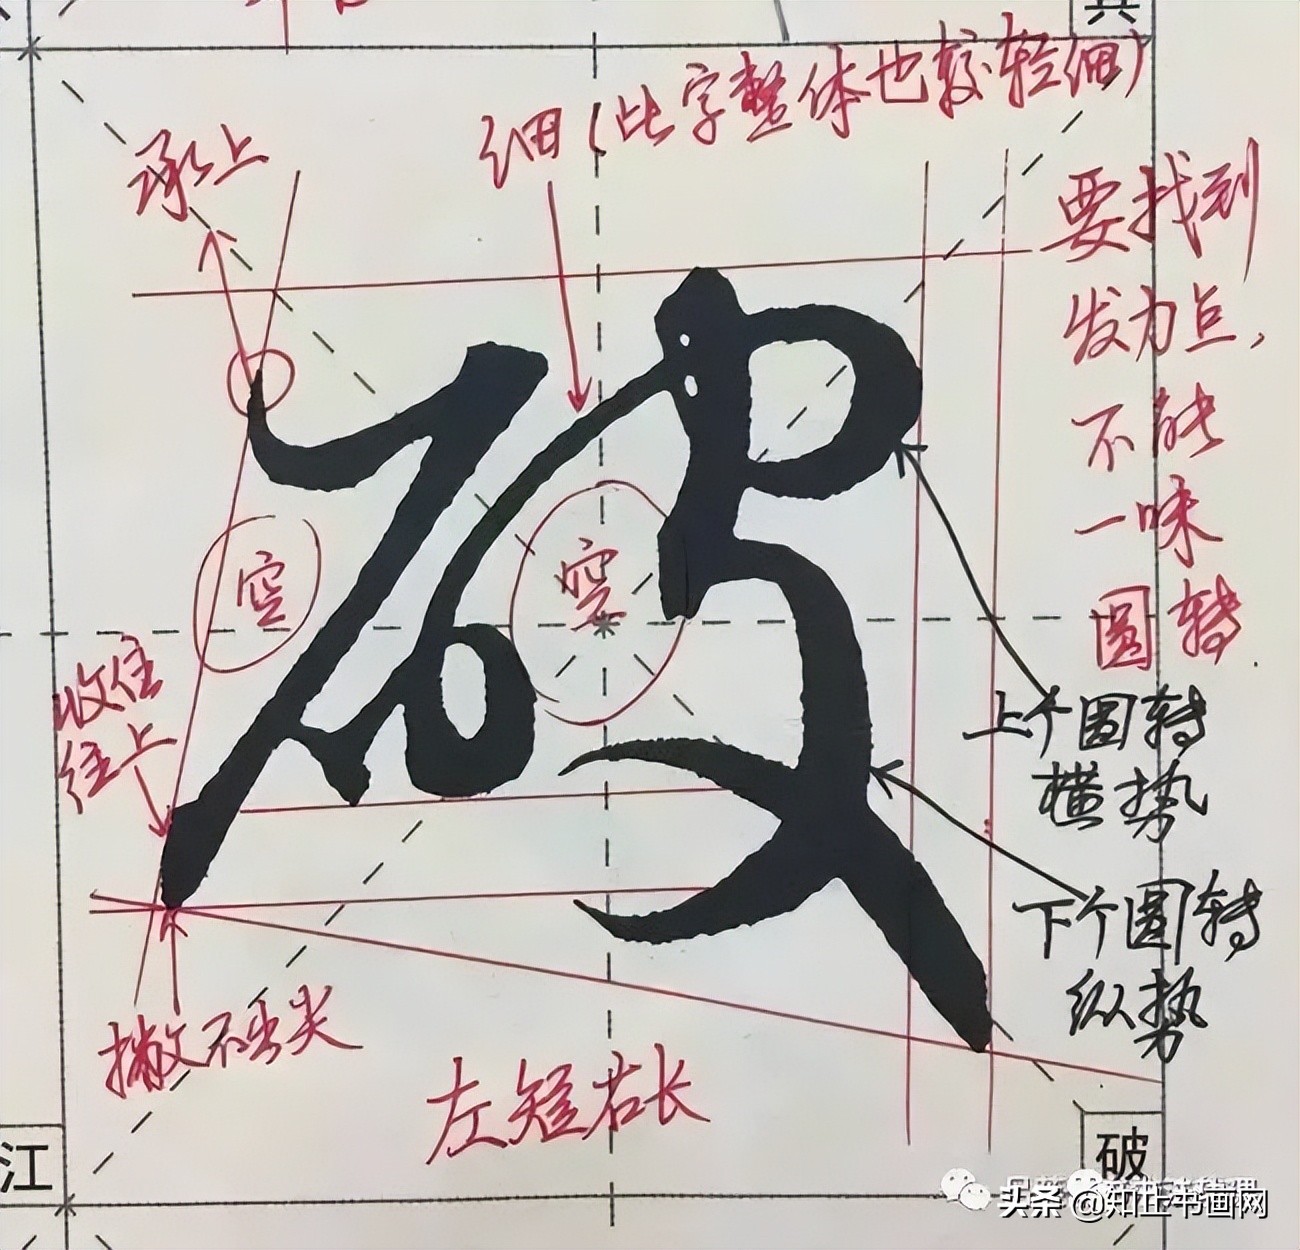 其
细(此字整体也较轻细)
承上
要找到
发力点,
不能
一味
圆转.
破
空
空
收住
往上
上个圆转
横势
下个圆转
纵势
撇不出尖
左短右长
江
破
头条 @知社书画网